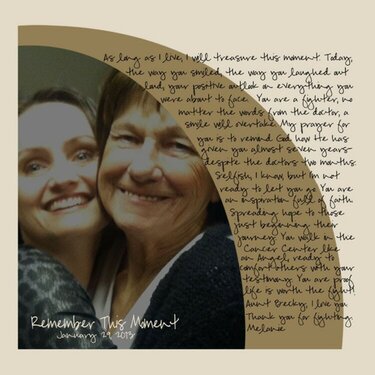 As long as I live, I will treasure this moment. Today,
the way you smiled, the way you laughed out
loud, your positive outlook on everything you
were about to face. You are a fighter, no
matter the words from the doctor, a
smile will overtake. My prayer for
you is to remind God how He has
given you almost seven years-
despite the doctors two months.
Selfish, I know, but I'm not
ready to let you go. You are
an inspiration full of faith.
Spreading hope to those
just beginning their
journey. You walk in the
Cancer Center like
an Angel, ready to
comfort others with your
testimony. You are proof
life is worth the fight!
Aunt Brecky, I love you.
Thank you for fighting.
Melanie
Remember This Moment
January 29, 2013